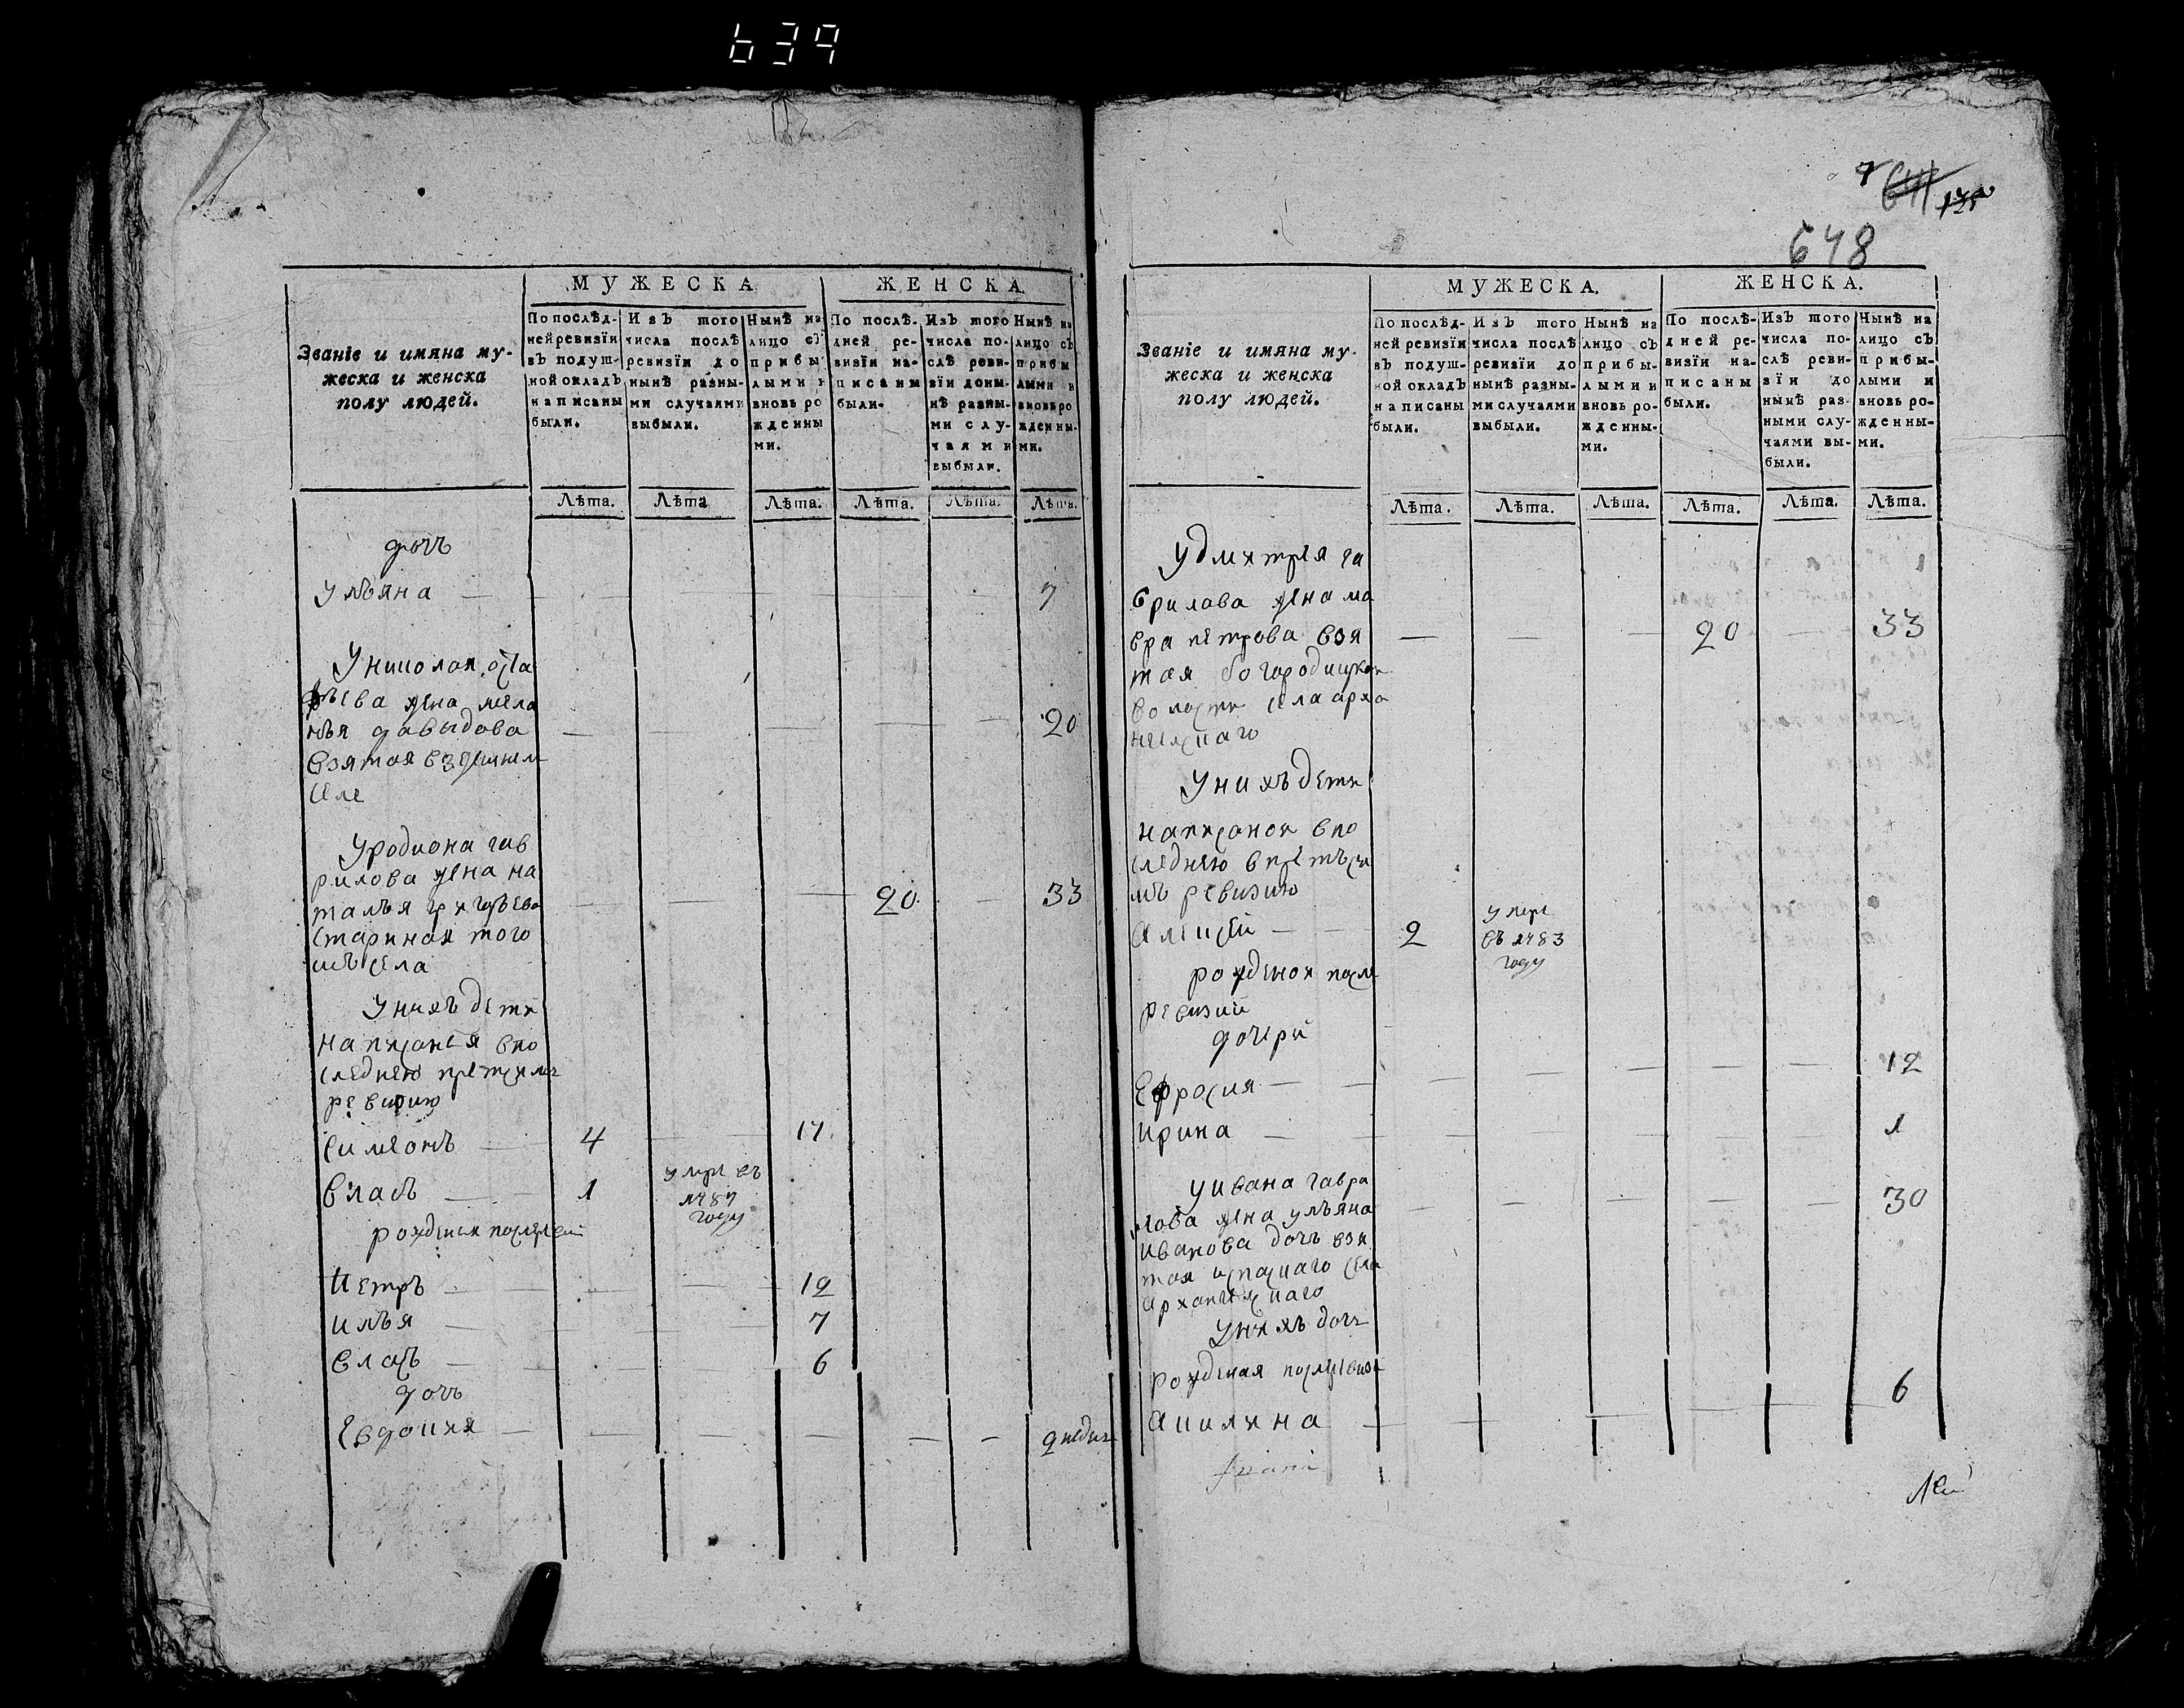 639
МУЖЕСКА
ЖЕНСКА
Званіе и имяна му-
жеска и женска
полу людей.
По послѣд-
ней ревизїи
въ подуш-
ной окладъ
написаны
были.
Изъ того
числа послѣ
ревизїи до
нынѣ разны-
ми случаями
выбыли.
Нынѣ на
лицо съ
прибы
лыми и
вновь ро
жденны
ми.
По послѣ-
дней ре-
визїи на-
писаны
были.
Изъ того
числа по-
слѣ реви-
зїи доны-
нѣ разны-
ми слу-
чаями
выбыли.
Нынѣ на
лицо съ
прибы
лыми и
вновь ро
жденны-
ми.
Лѣта. Лѣта Лѣта. Лѣта. Лѣта. Лѣта.
дочь
Ульяна 7
У николая
жена мела
нья давыдова 20
взятая
селе
У родиона гав
рилова жена на
талья григорьева 20 33
старинная того
жъ села
У нихъ дети
написаныя впо
следнею
ревизию
симеонъ 4 17
власъ 1 умре въ
1787
году
рожденыя
Петръ 12
илья 7
власъ 6
дочь
Евдокия 2 недели
7 641 125
648
МУЖЕСКА.
ЖЕНСКА.
Званіе и имяна му-
жеска и женска
полу людей.
По послѣд-
ней ревизїи
въ подуш-
ной окладъ
написаны
были.
Изъ того
числа послѣ
ревизїи до
нынѣ разны-
ми случаями
выбыли.
Нынѣ на
лицо съ
прибы-
лыми и
вновь ро-
жденны-
ми.
По послѣ-
дней ре-
визїи на-
писаны
были.
Изъ того
числа по-
слѣ реви-
зїи до
нынѣ раз-
ными слу-
чаями вы-
были.
Нынѣ на
лицо съ
прибы-
лыми и
вновь ро-
жденны-
ми.
Лѣта. Лѣта. Лѣта. Лѣта. Лѣта. Лѣта.
У дмитрея га
врилова жена ма
вра петрова взя 20 33
тая богородицкой
волости села арха
нгелскаго
У нихъ дети
написаной впо
следнею
ревизию
Алексей 2 умре
въ 1783
году
рожденои после
ревизии
дочери
Ефросия 12
ирина 1
У ивана гаври
лова жена ульяна 30
иванова дочь взя
тая села
архангелскаго
У нихъ дочь
рожденая
Акилина 6